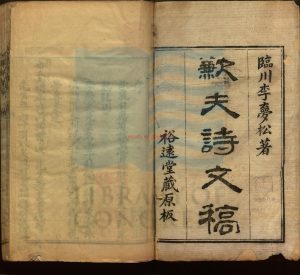 臨川李夢松著
歉夫詩文稿
裕遠堂藏原板